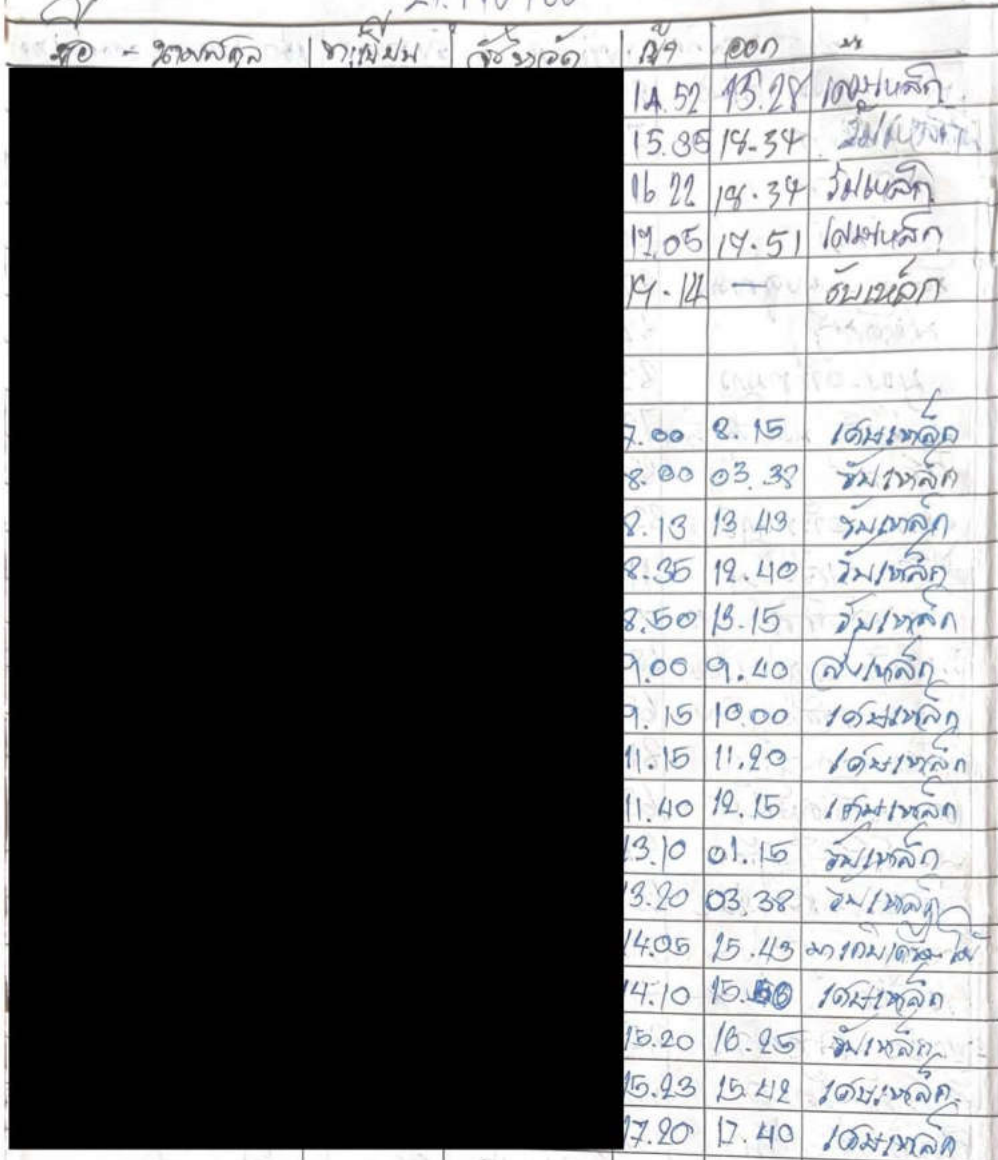 ชื่อ - นามสกุล ทะเบียน จังหวัด เข้า ออก
14.52 15.28 เศษเหล็ก
15.35 18.34 รับเหล็ก
16 22 18.34 รับเหล็ก
17.05 17.51 เศษเหล็ก
19.14 — รับเหล็ก
7.00 8.15 เศษเหล็ก
8.00 03.38 รับเหล็ก
8.13 13.43 รับเหล็ก
8.35 12.40 รับเหล็ก
8.50 13.15 รับเหล็ก
9.00 9.40 ส่งเหล็ก
9.15 10.00 เศษเหล็ก
11.15 11.20 เศษเหล็ก
11.40 12.15 เศษเหล็ก
13.10 01.15 รับเหล็ก
13.20 03.38 รับเหล็ก
14.05 15.43
14.10 15.50 เศษเหล็ก
15.20 16.25 รับเหล็ก
15.23 15.42 เศษเหล็ก
17.20 17.40 เศษเหล็ก